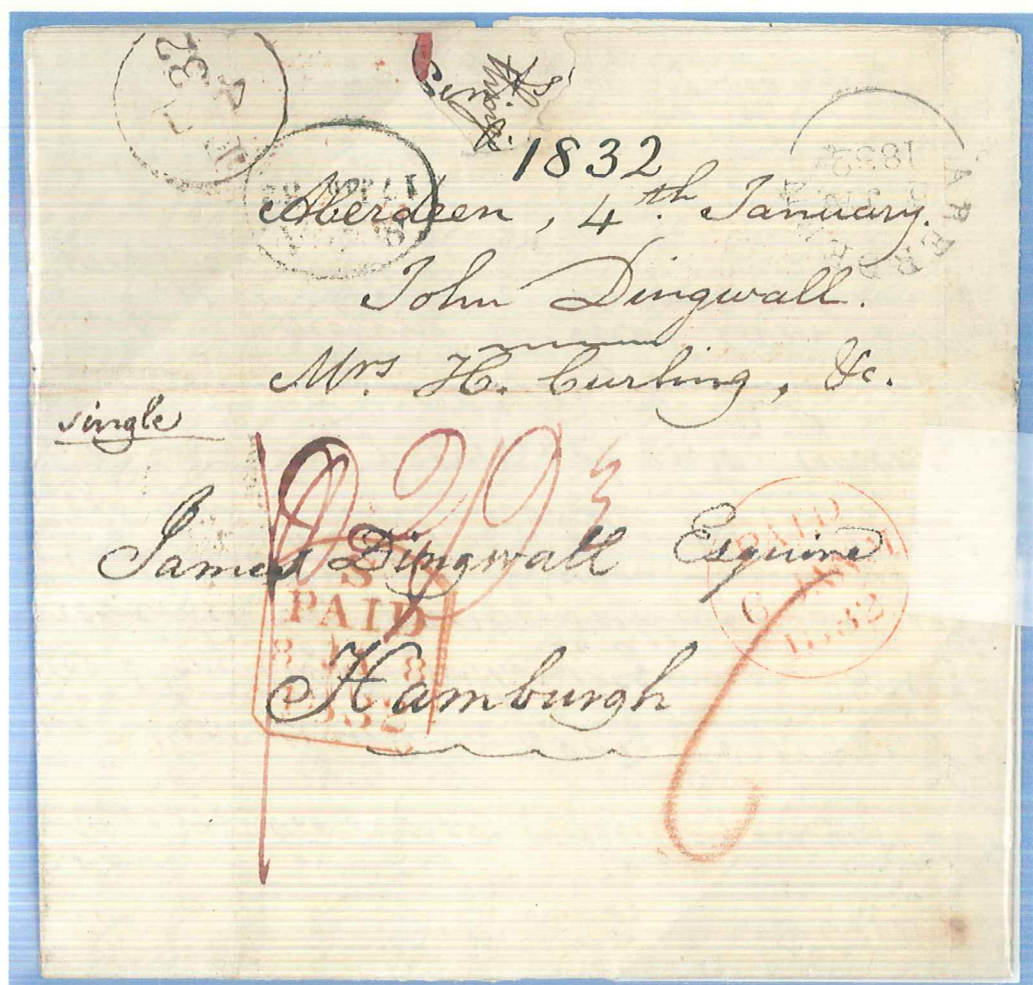 1832
Aberdeen, 4th January.
John Dingwall.
Mrs. H. Curling, &c.
single
James Dingwall Esquire
Hamburgh
PAID
6 JAN
1832
S
PAID
8 JA 8
1832
ABERDEEN
JAN 4
1832